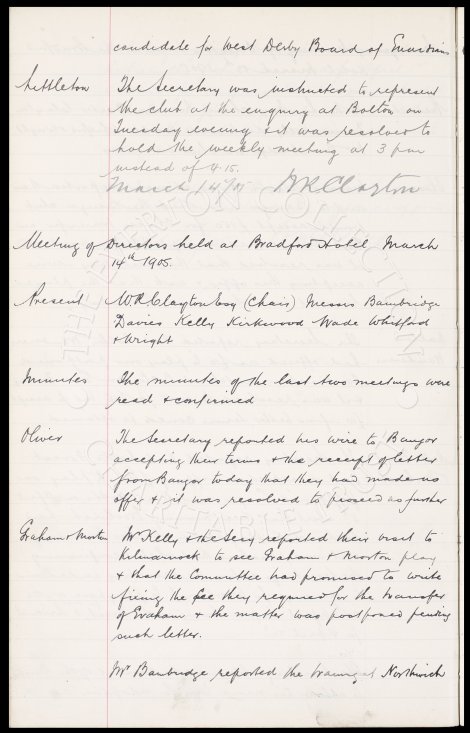 candidate for West Derby Board of Guardians
Settleton The Secretary was instructed to represent
the club at the enquiry at Bolton on
Tuesday evening & it was resolved to
hold the weekly meeting at 3 pm
instead of 4.15.
March 14/05 W R Clayton
Meeting of Directors held at Bradford Hotel March
14th 1905.
Present W.R. Clayton Esq (Chair) Messrs Bainbridge
Davies Kelly Kirkwood Wade Whitford
& Wright
Minutes The minutes of the last two meetings were
read & confirmed
Oliver The Secretary reported his wire to Bangor
accepting their terms & the receipt of letter
from Bangor today that they had made no
offer & it was resolved to proceed no further
Graham & Morton Mr Kelly & the Secy reported their visit to
Kilmarnock to see Graham & Morton play
& that the Committee had promised to write
fixing the fee they required for the transfer
of Graham & the matter was postponed pending
such letter.
Mr Bainbridge reported the training at Northwich
THE EVERTON COLLECTION
CHARITABLE TRUST